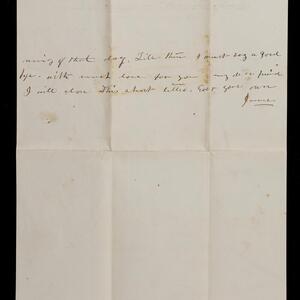 ning of that day. Till then I must say a good
bye. with much love for you my dear friend
I will close this short letter. Ever your own